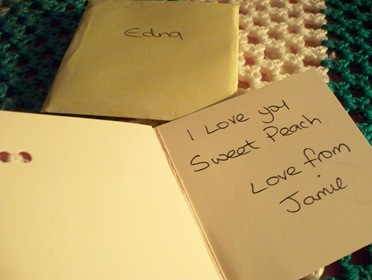 Edna
I Love you
Sweet Peach
Love from
Jamie